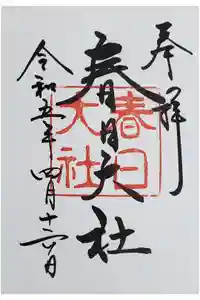 奉拝
春日大社
春日大社
令和五年四月十六日